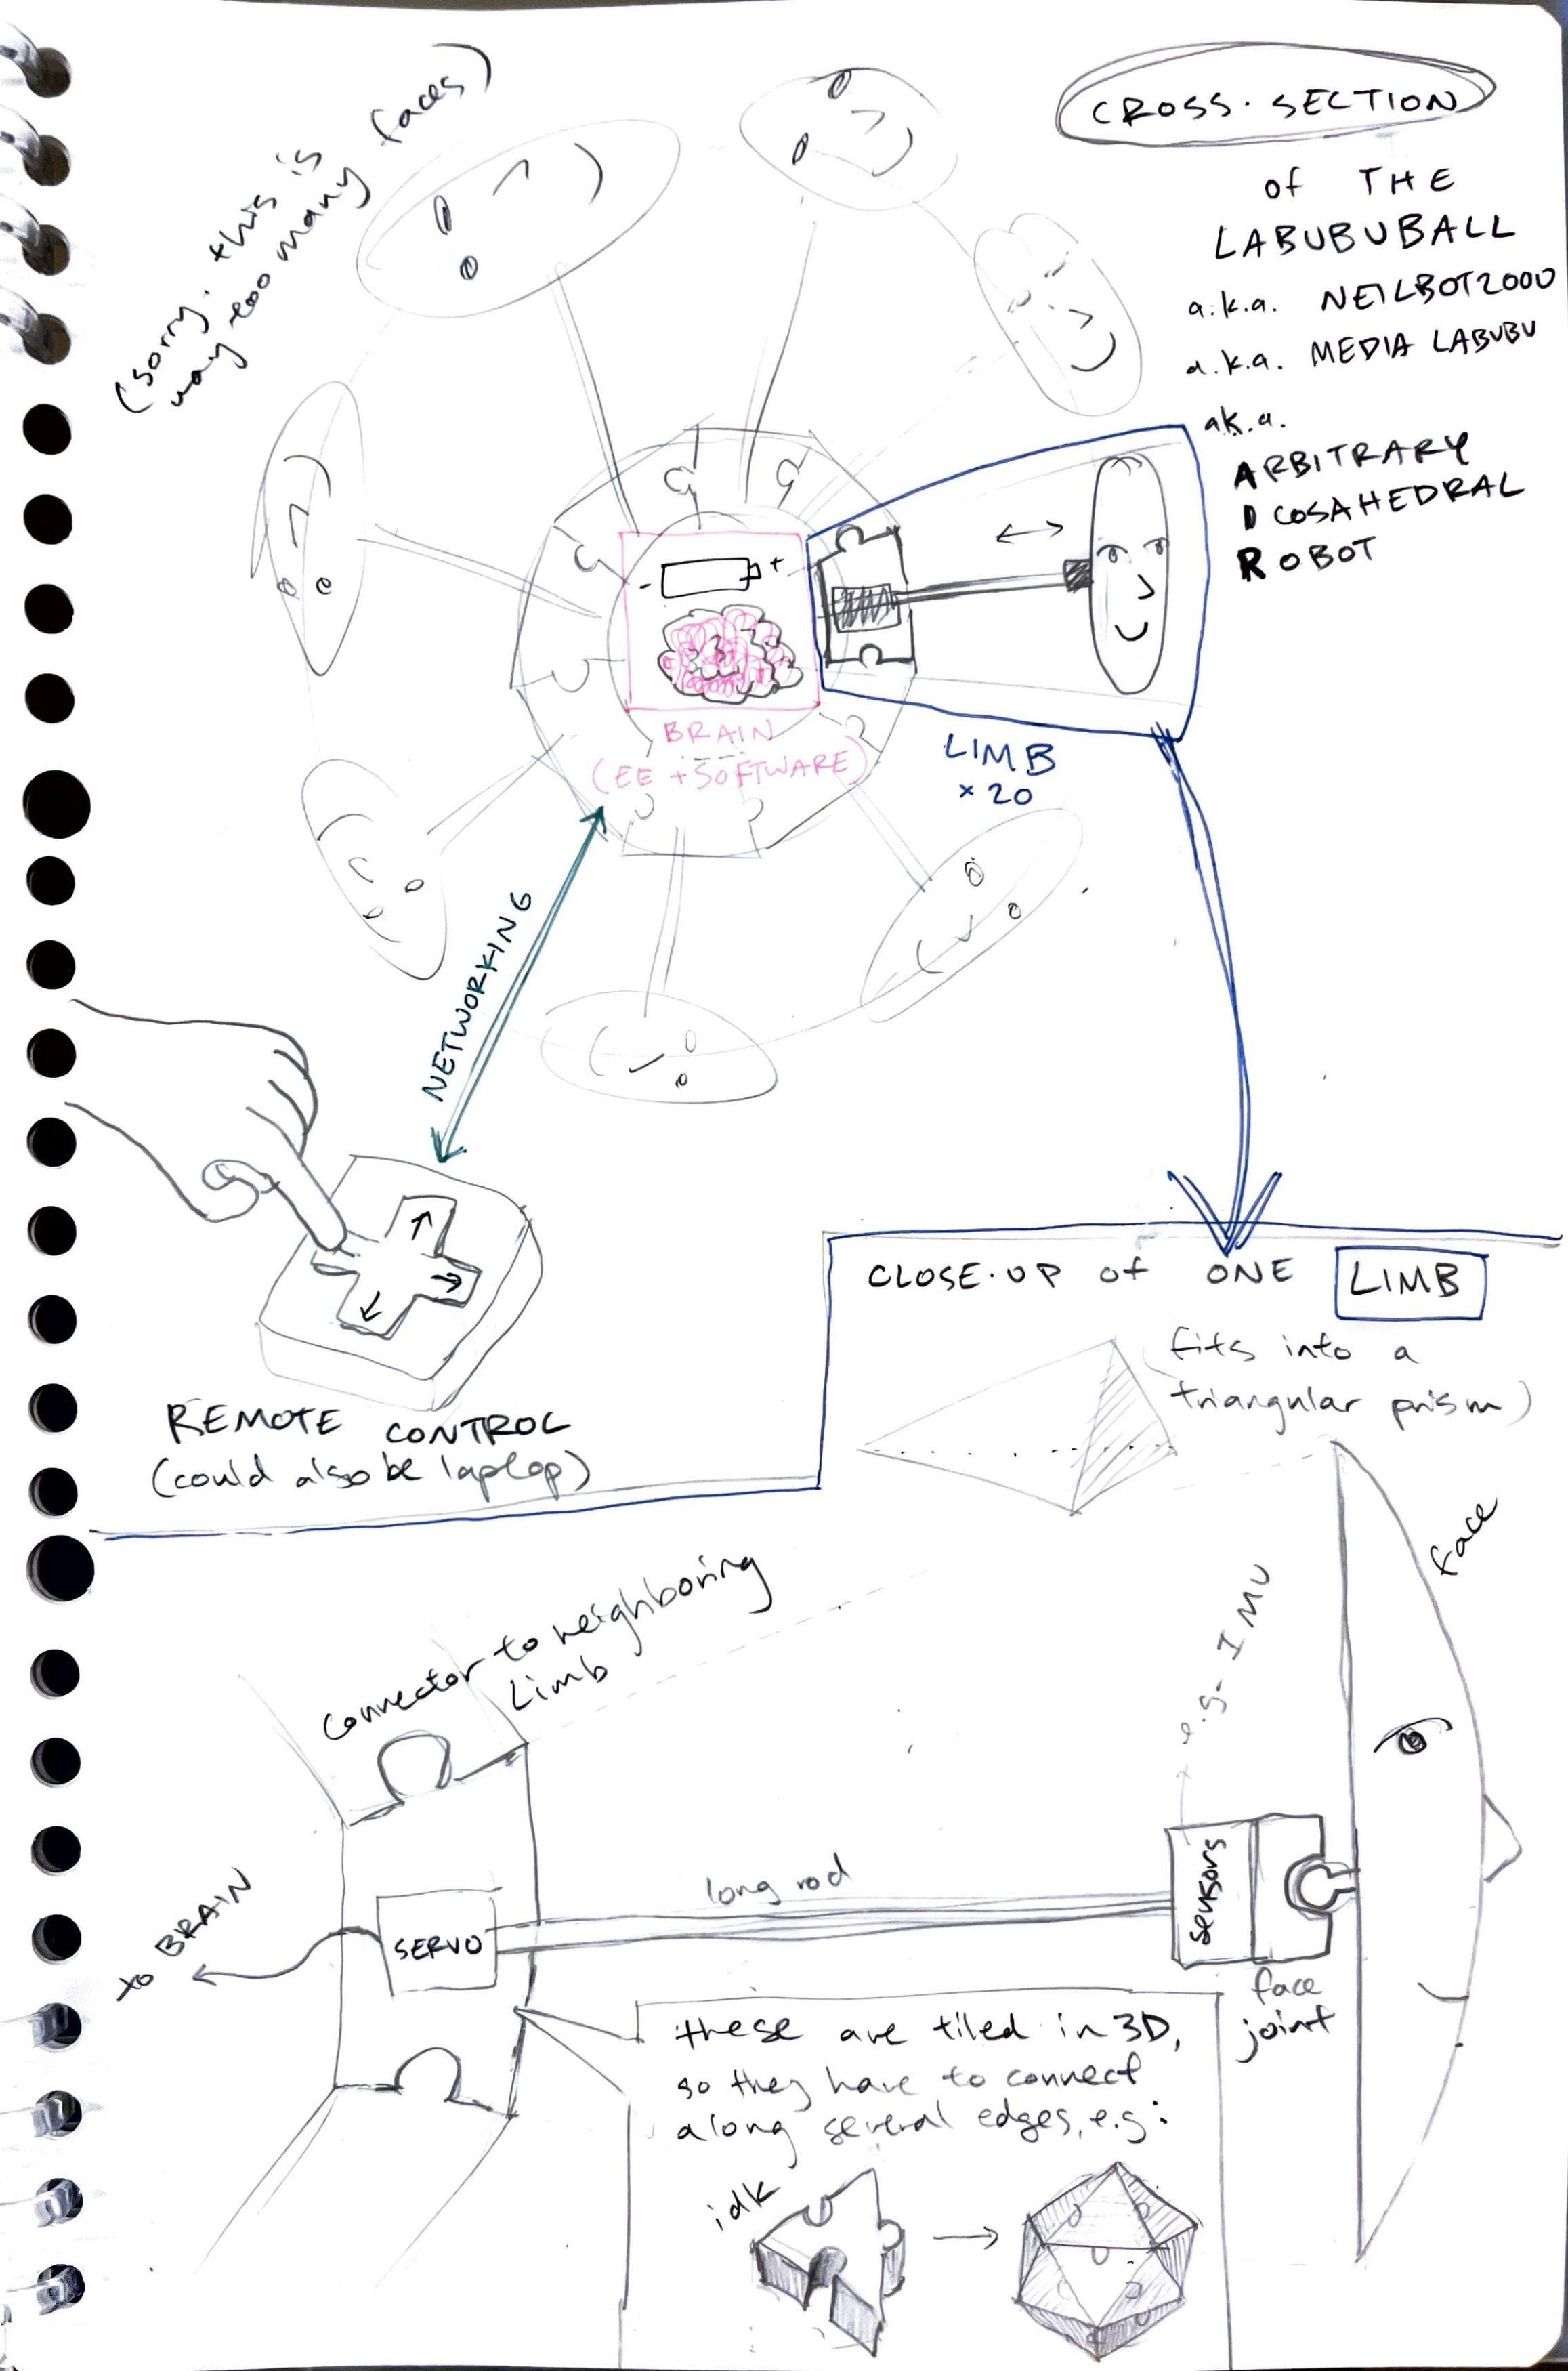 (sorry. this is
way too many faces)
CROSS·SECTION
of THE
LABUBUBALL
a.k.a. NEILBOT2000
a.k.a. MEDIA LABUBU
a.k.a.
ARBITRARY
ICOSAHEDRAL
ROBOT
- +
BRAIN
(EE + SOFTWARE)
LIMB
× 20
NETWORKING
REMOTE CONTROL
(could also be laptop)
CLOSE·UP of ONE LIMB
(fits into a
triangular prism)
face
e.g. IMU
Connector to neighboring
Limb
to BRAIN
SERVO
long rod
sensors
face
joint
these are tiled in 3D,
so they have to connect
along several edges, e.g:
idk